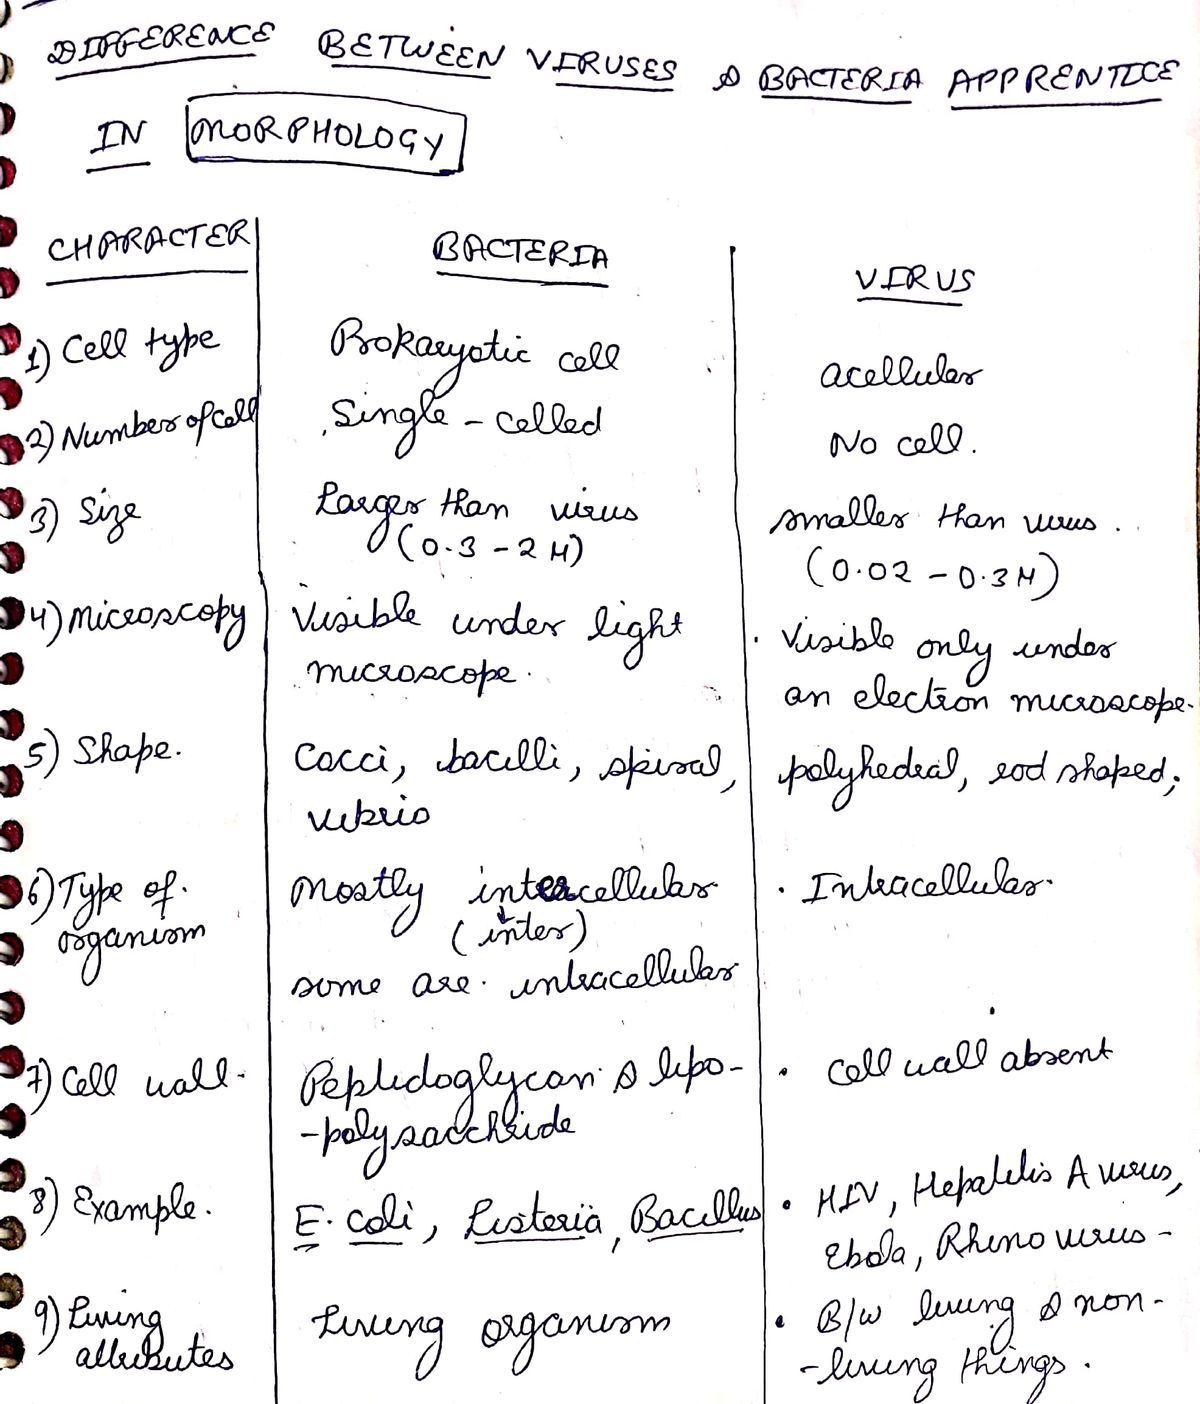 DIFFERENCE BETWEEN VIRUSES & BACTERIA APPRENTICE
IN MORPHOLOGY
CHARACTER BACTERIA VIRUS
1) Cell type Prokaryotic cell acellular
2) Number of cell Single - celled No cell.
3) Size Larger than virus smaller than virus.
(0.3 - 2 μ) (0.02 - 0.3 μ)
4) Microscopy Visible under light Visible only under
microscope. an electron microscope.
5) Shape. Cocci, bacilli, spiral, polyhedral, rod shaped;
vibrio
6) Type of. Mostly intercellular Intracellular.
organism (inter)
some are. intracellular
7) Cell wall. Peptidoglycan & lipo- Cell wall absent
-polysaccharide
8) Example. E. coli, Listeria, Bacillus HIV, Hepatitis A virus,
Ebola, Rhino virus -
9) Living Living organism B/w living & non-
attributes -living things.